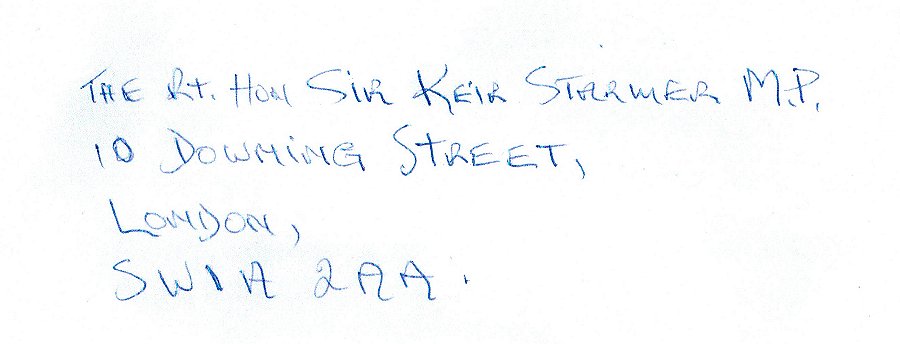 THE Rt. HON SIR KEIR STARMER M.P.
10 DOWNING STREET,
LONDON,
SW1A 2AA.